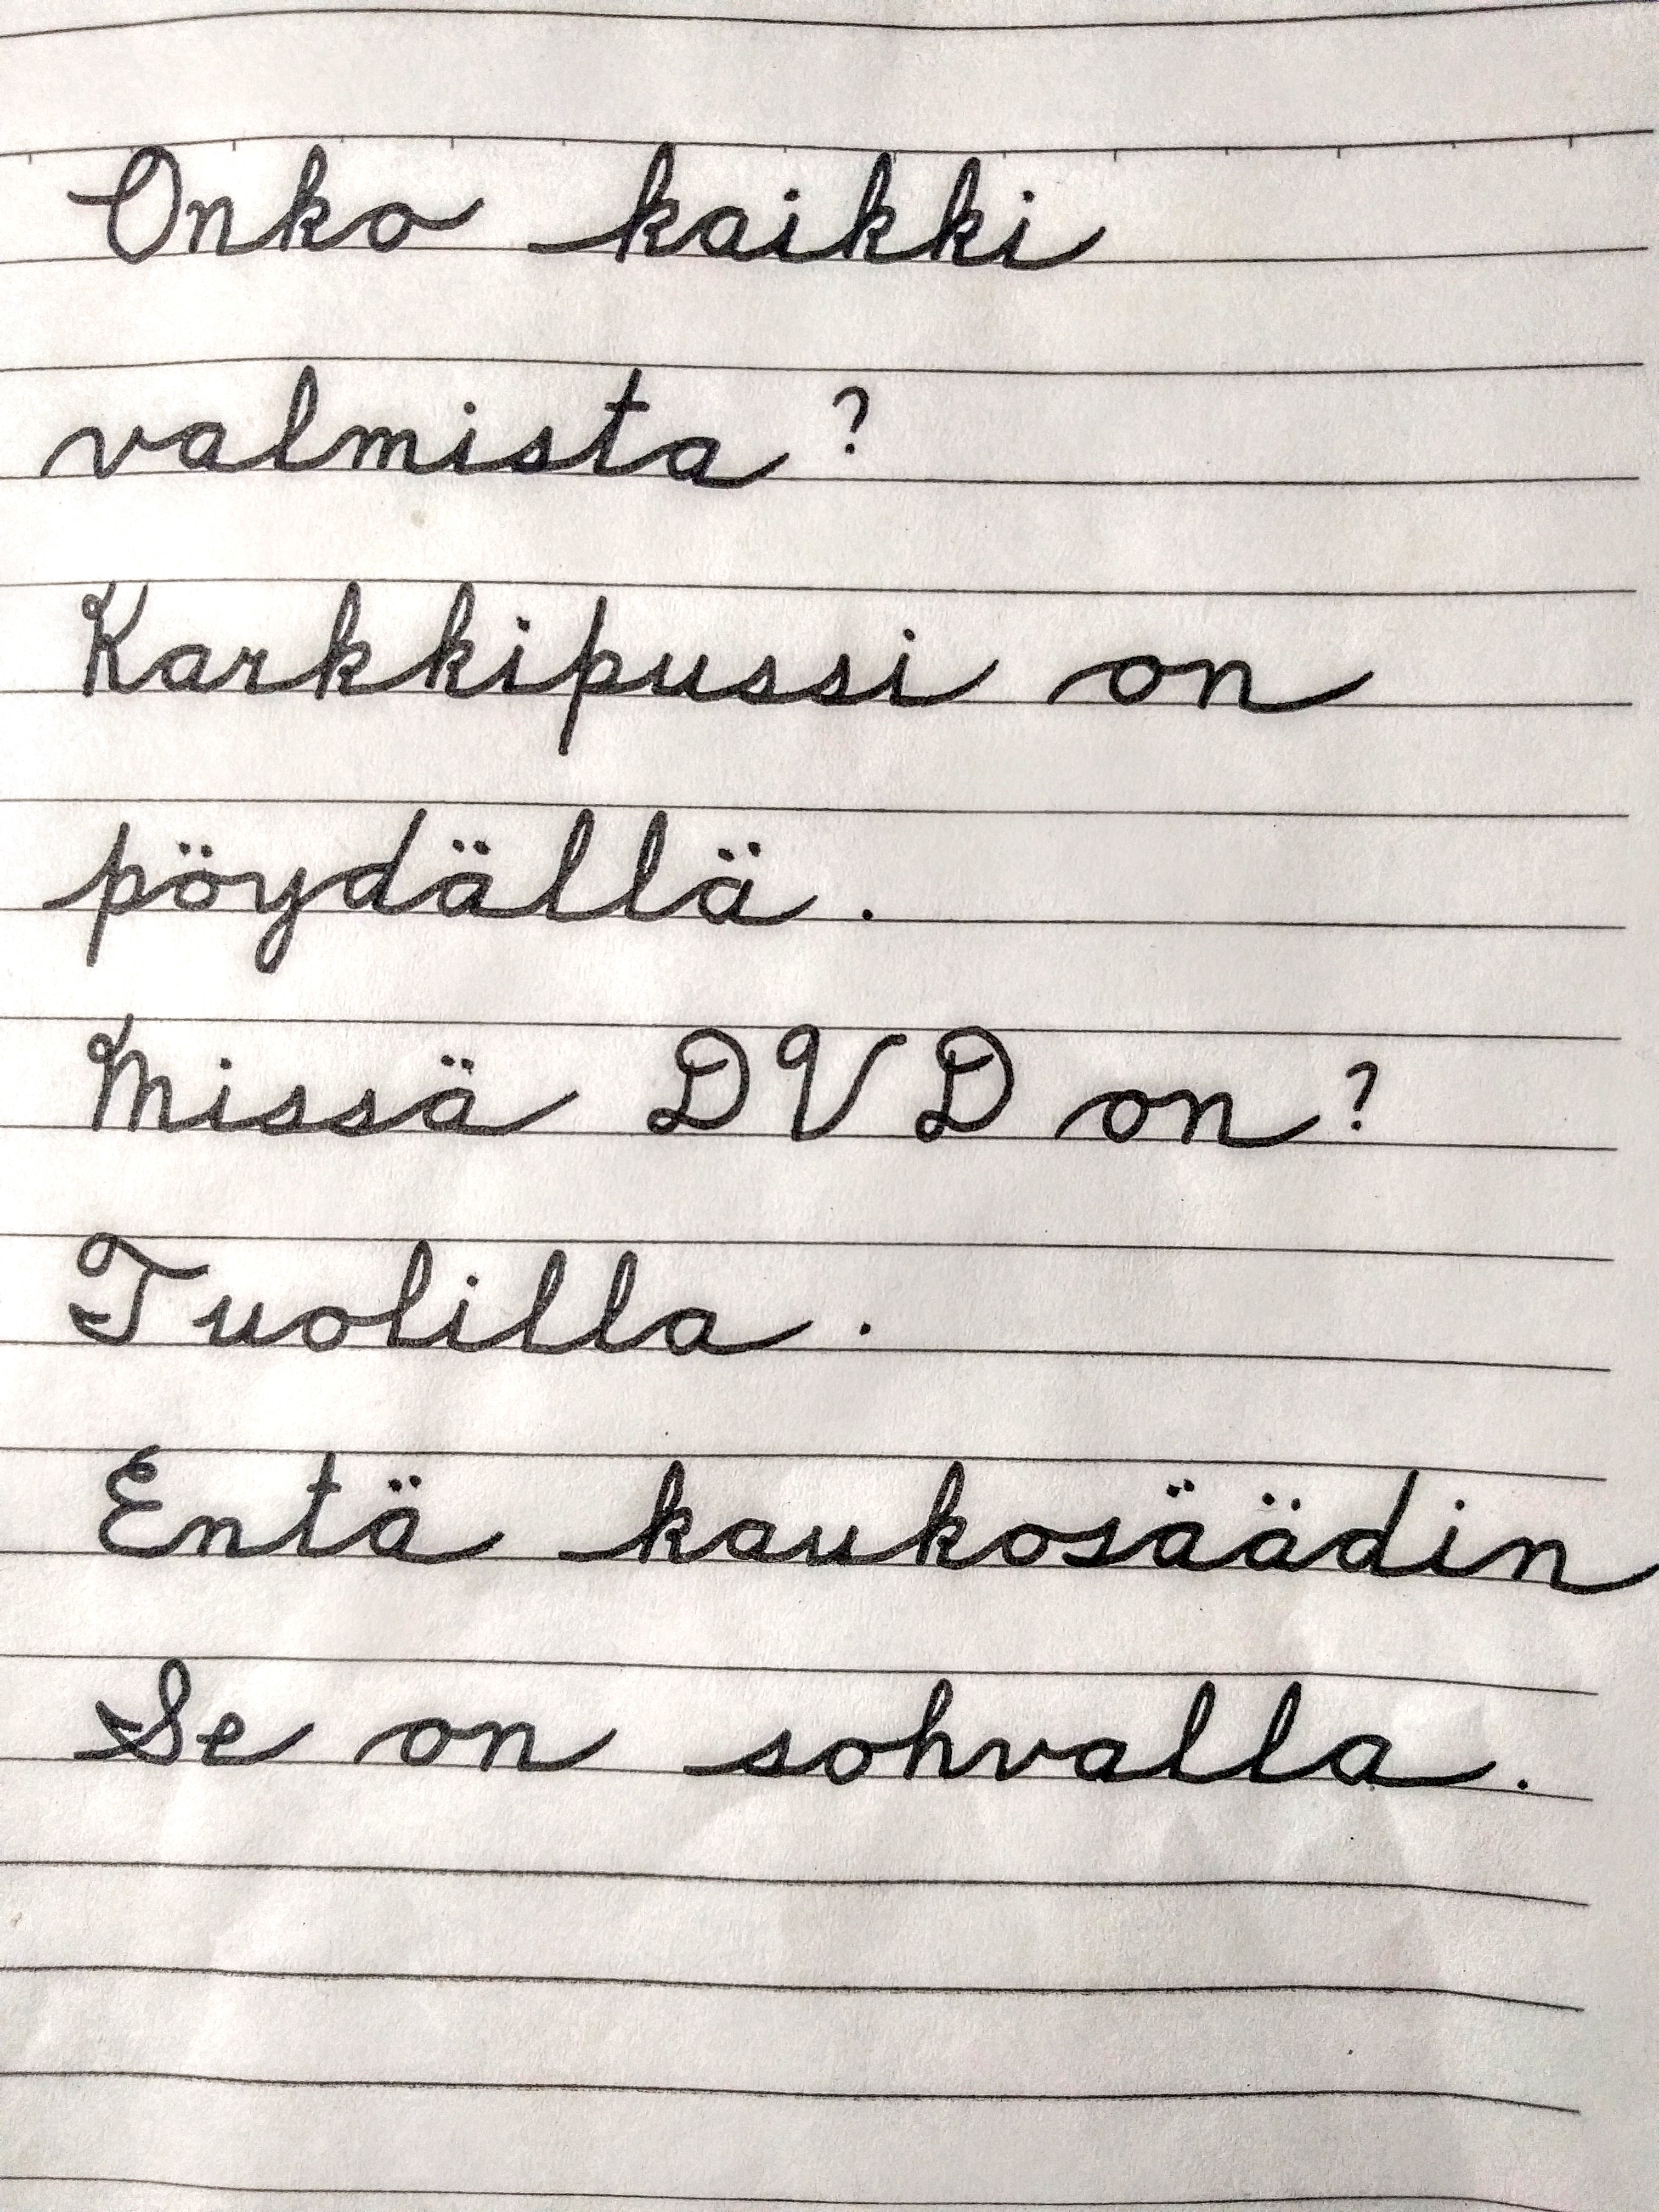 Onko kaikki
valmista?
Karkkipussi on
pöydällä.
Missä DVD on?
Tuolilla.
Entä kaukosäädin
Se on sohvalla.